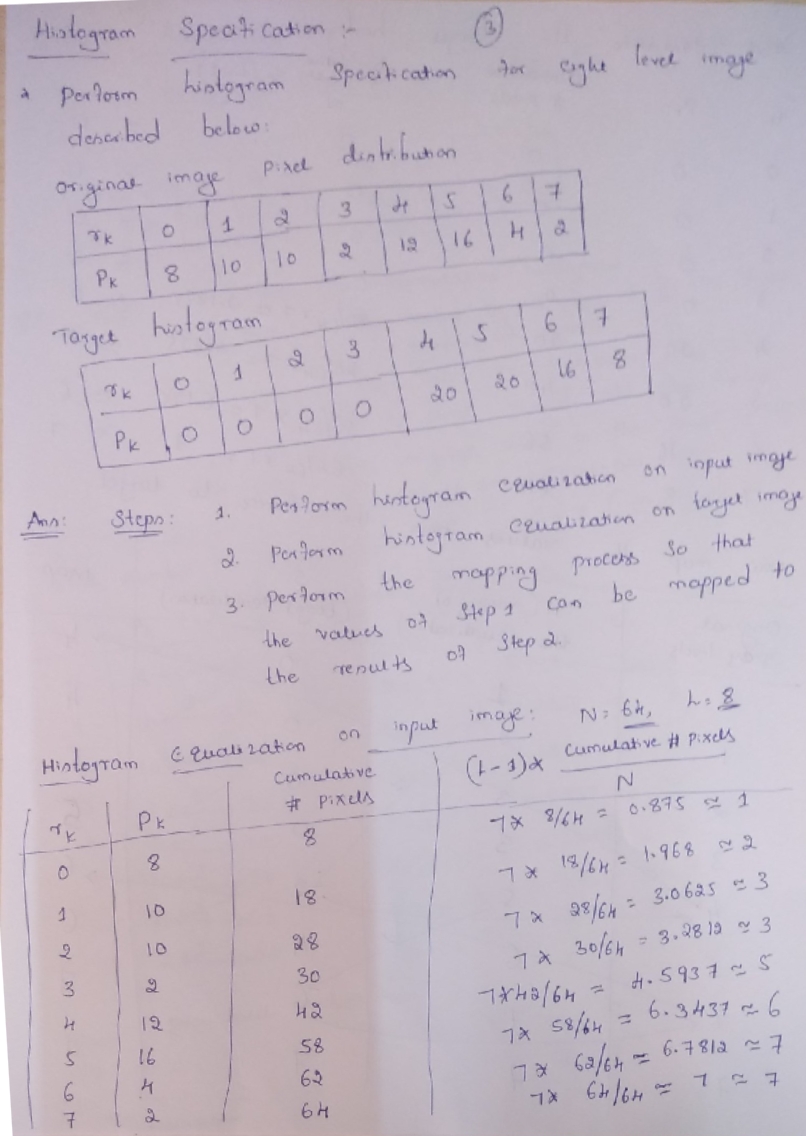 Histogram Specification :- ③
* Perform histogram Specification for eight level image
described below:
Original image pixel distribution
rk 0 1 2 3 4 5 6 7
Pk 8 10 10 2 12 16 4 2
Target histogram
rk 0 1 2 3 4 5 6 7
Pk 0 0 0 0 20 20 16 8
Ans: Steps: 1. Perform histogram equalization on input image
2. Perform histogram equalization on target image
3. Perform the mapping process so that
the values of Step 1 can be mapped to
the results of Step 2.
Histogram Equalization on input image: N = 64, L = 8
rk Pk Cumulative # Pixels (L-1)* Cumulative # Pixels / N
0 8 8 7* 8/64 = 0.875 ≃ 1
1 10 18 7* 18/64 = 1.968 ≃ 2
2 10 28 7* 28/64 = 3.0625 ≃ 3
3 2 30 7* 30/64 = 3.2812 ≃ 3
4 12 42 7*42/64 = 4.5937 ≃ 5
5 16 58 7* 58/64 = 6.3437 ≃ 6
6 4 62 7* 62/64 = 6.7812 ≃ 7
7 2 64 7* 64/64 = 7 ≃ 7